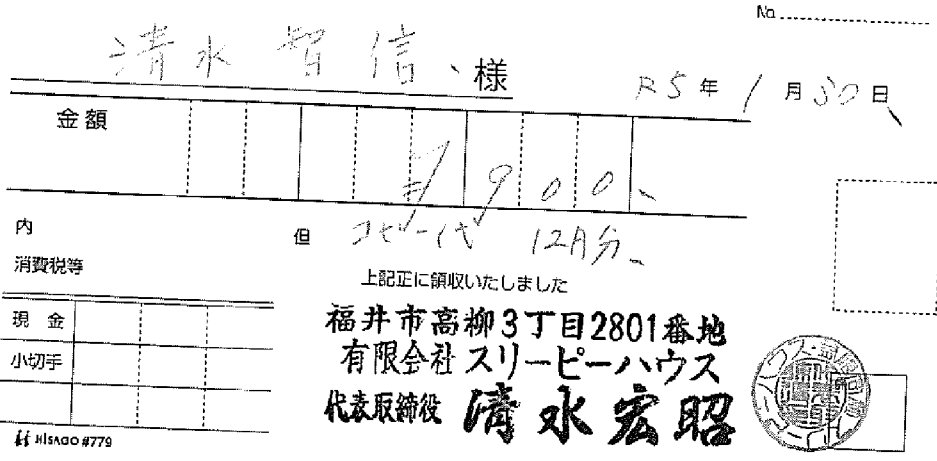 No.
清水智信、様
R5年1月30日
金額
¥900、
内
但 コピー代 12月分、
消費税等
上記正に領収いたしました
現金
小切手
福井市高柳3丁目2801番地
有限会社スリーピーハウス
代表取締役 清水宏昭
HISAGO #779